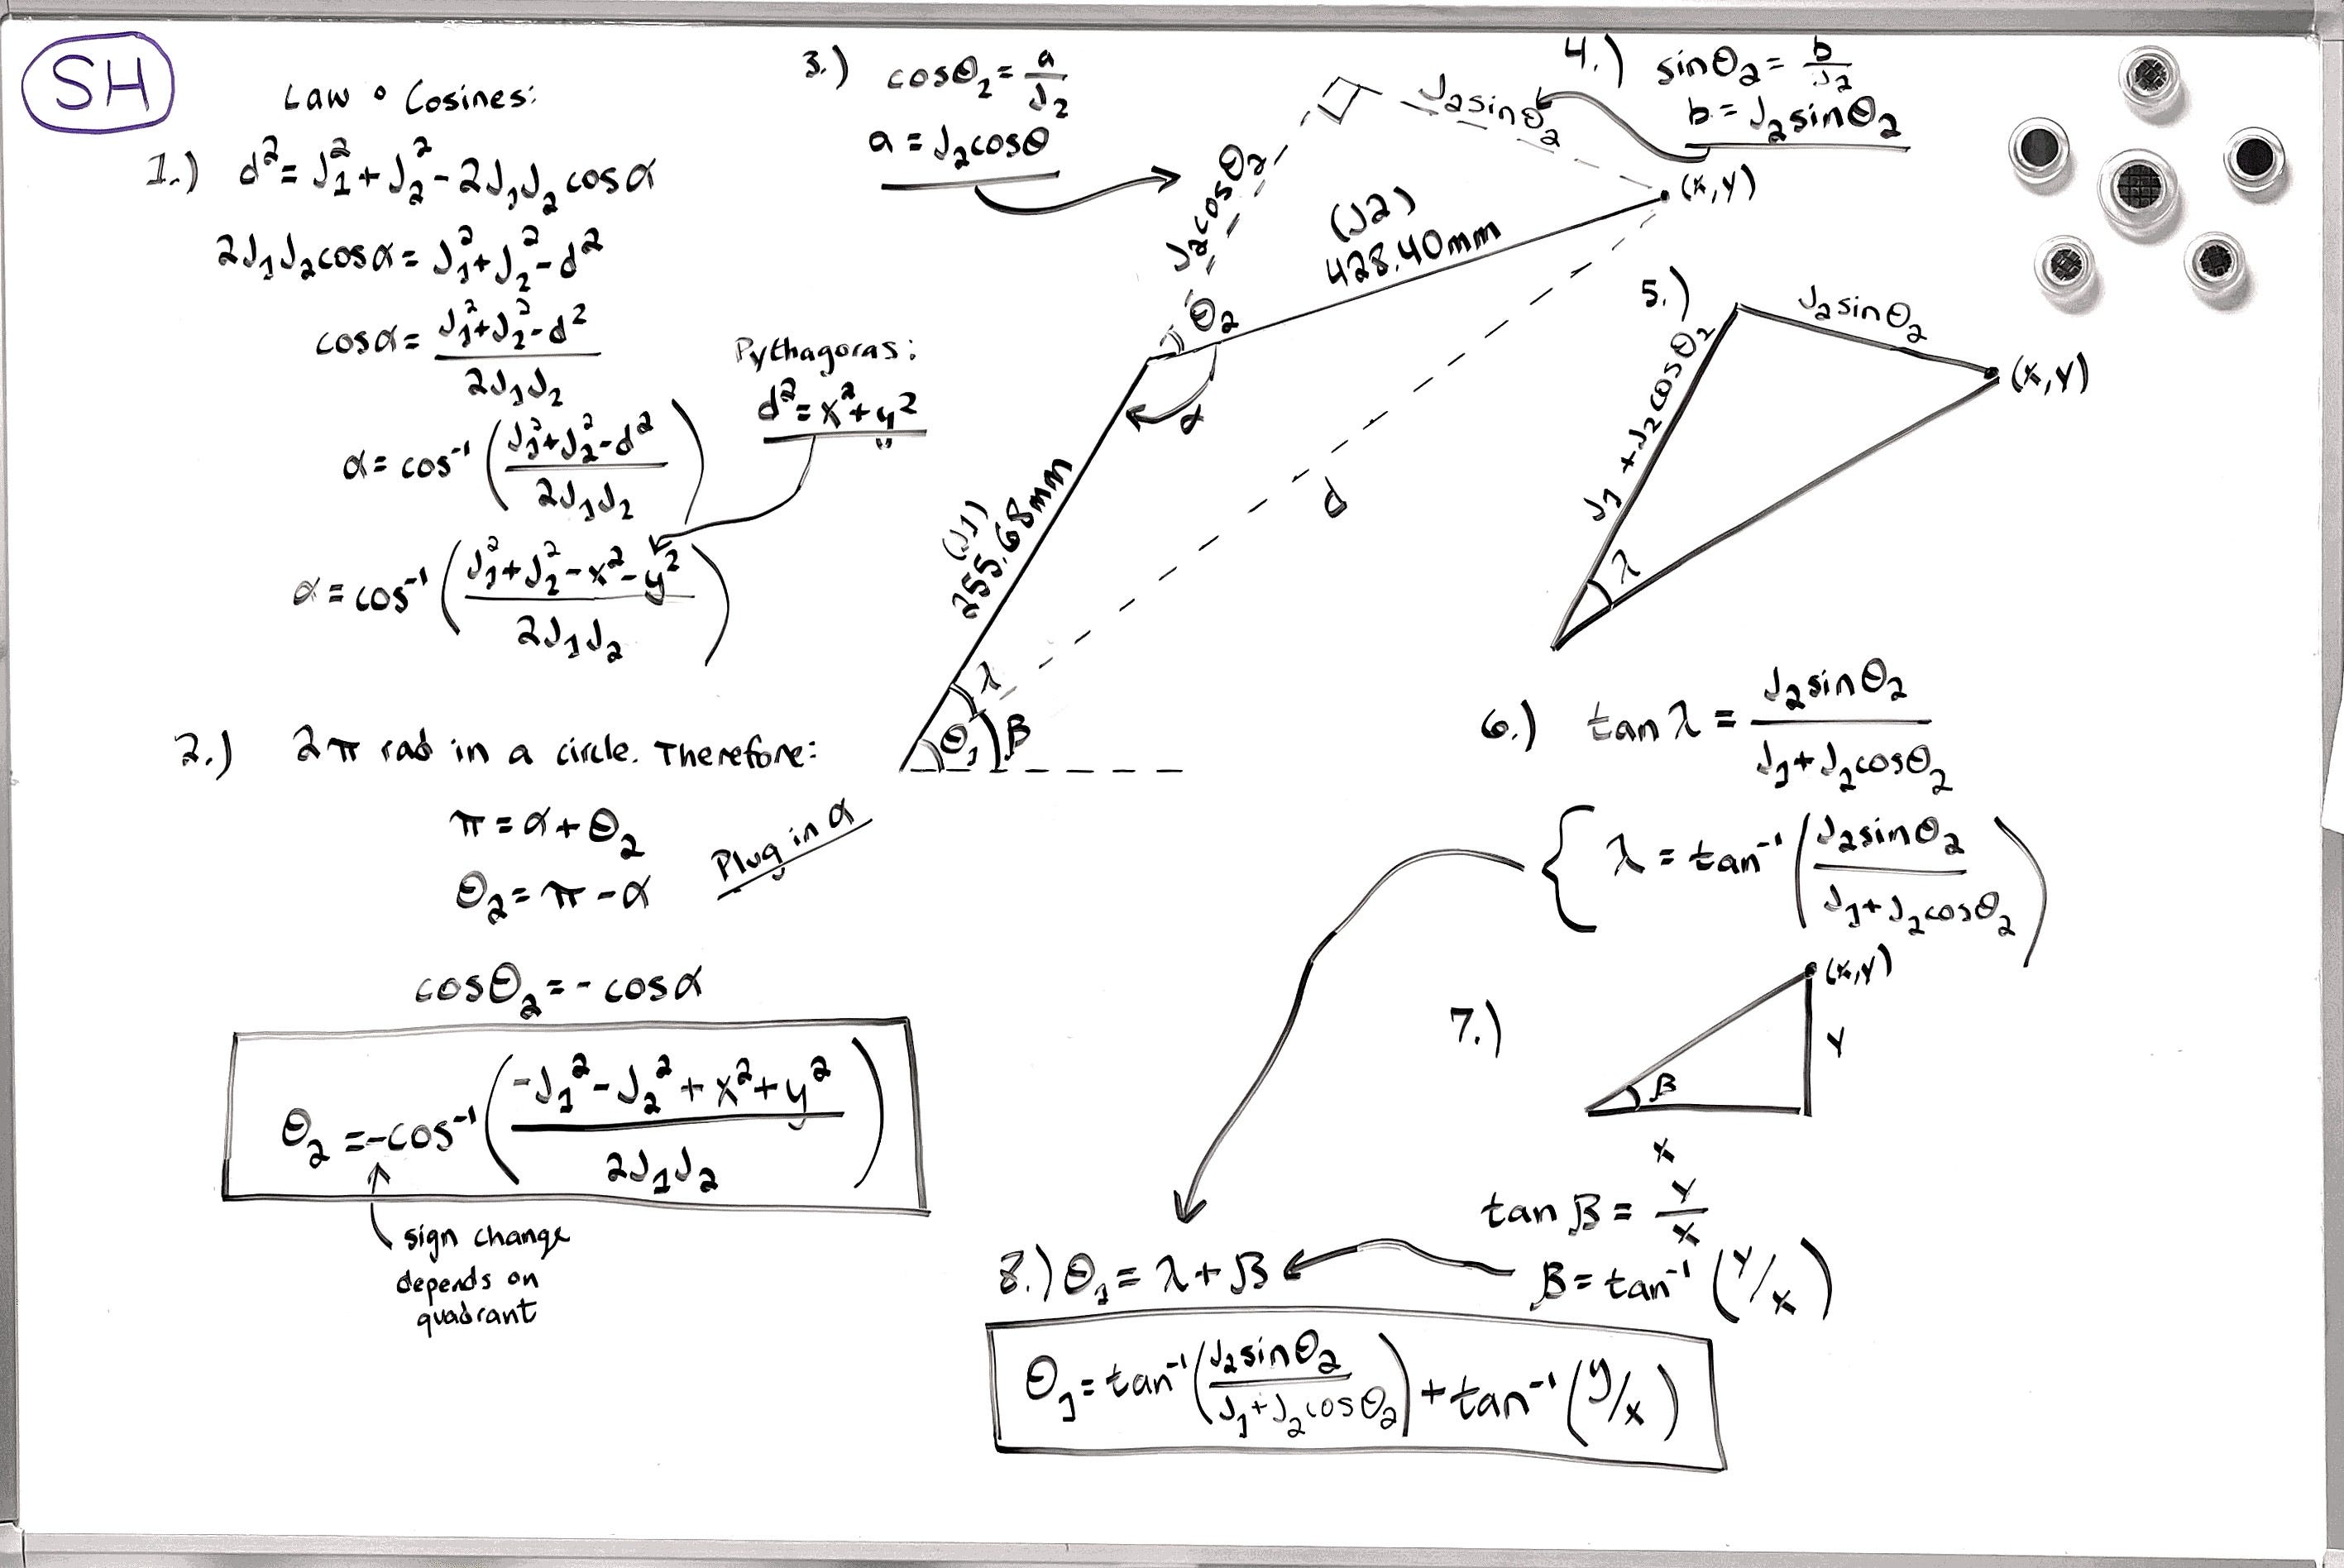 SH
Law o Cosines:
1.) d² = J₁² + J₂² - 2J₁J₂ cosα
2J₁J₂cosα = J₁² + J₂² - d²
cosα = (J₁² + J₂² - d²) / 2J₁J₂
α = cos⁻¹ ((J₁² + J₂² - d²) / 2J₁J₂)
α = cos⁻¹ ((J₁² + J₂² - x² - y²) / 2J₁J₂)
Pythagoras:
d² = x² + y²
2.) 2π rad in a circle. Therefore:
π = α + θ₂
θ₂ = π - α
Plug in α
cosθ₂ = - cosα
θ₂ = -cos⁻¹ ((-J₁² - J₂² + x² + y²) / 2J₁J₂)
sign change
depends on
quadrant
3.) cosθ₂ = a / J₂
a = J₂cosθ
J₂cosθ₂
J₂sinθ₂
4.) sinθ₂ = b / J₂
b = J₂sinθ₂
(x,y)
(J2)
428.40mm
θ₂
α
(J1)
255.68mm
d
λ
θ₁
β
5.)
J₂sinθ₂
J₁ + J₂cosθ₂
(x,y)
λ
6.) tan λ = J₂sinθ₂ / (J₁ + J₂cosθ₂)
λ = tan⁻¹ (J₂sinθ₂ / (J₁ + J₂cosθ₂))
7.)
(x,y)
y
β
x
tan β = y / x
β = tan⁻¹ (y/x)
8.) θ₁ = λ + β
θ₁ = tan⁻¹ (J₂sinθ₂ / (J₁ + J₂cosθ₂)) + tan⁻¹ (y/x)